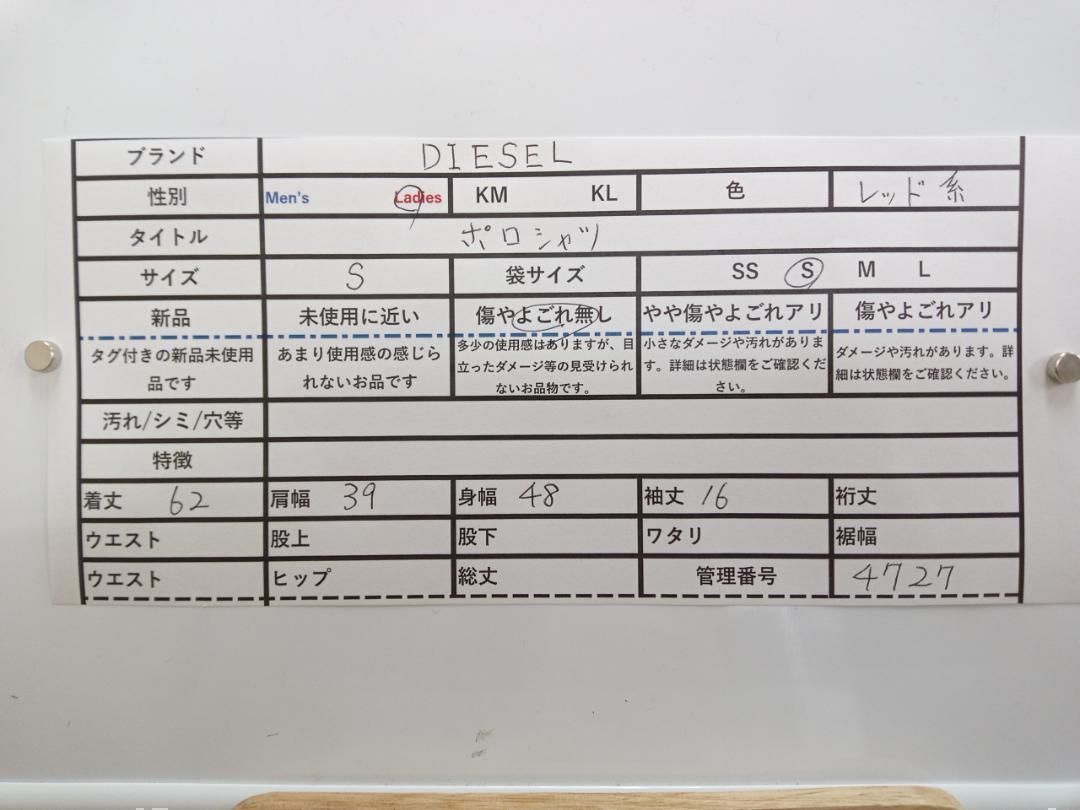 ブランド DIESEL
性別 Men's Ladies KM KL 色 レッド系
タイトル ポロシャツ
サイズ S 袋サイズ SS S M L
新品 未使用に近い 傷やよごれ無し やや傷やよごれアリ 傷やよごれアリ
タグ付きの新品未使用品です
あまり使用感の感じられないお品です
多少の使用感はありますが、目立ったダメージ等の見受けられないお品物です。
小さなダメージや汚れがあります。詳細は状態欄をご確認ください。
ダメージや汚れがあります。詳細は状態欄をご確認ください。
汚れ/シミ/穴等
特徴
着丈 62 肩幅 39 身幅 48 袖丈 16 裄丈
ウエスト 股上 股下 ワタリ 裾幅
ウエスト ヒップ 総丈 管理番号 4727